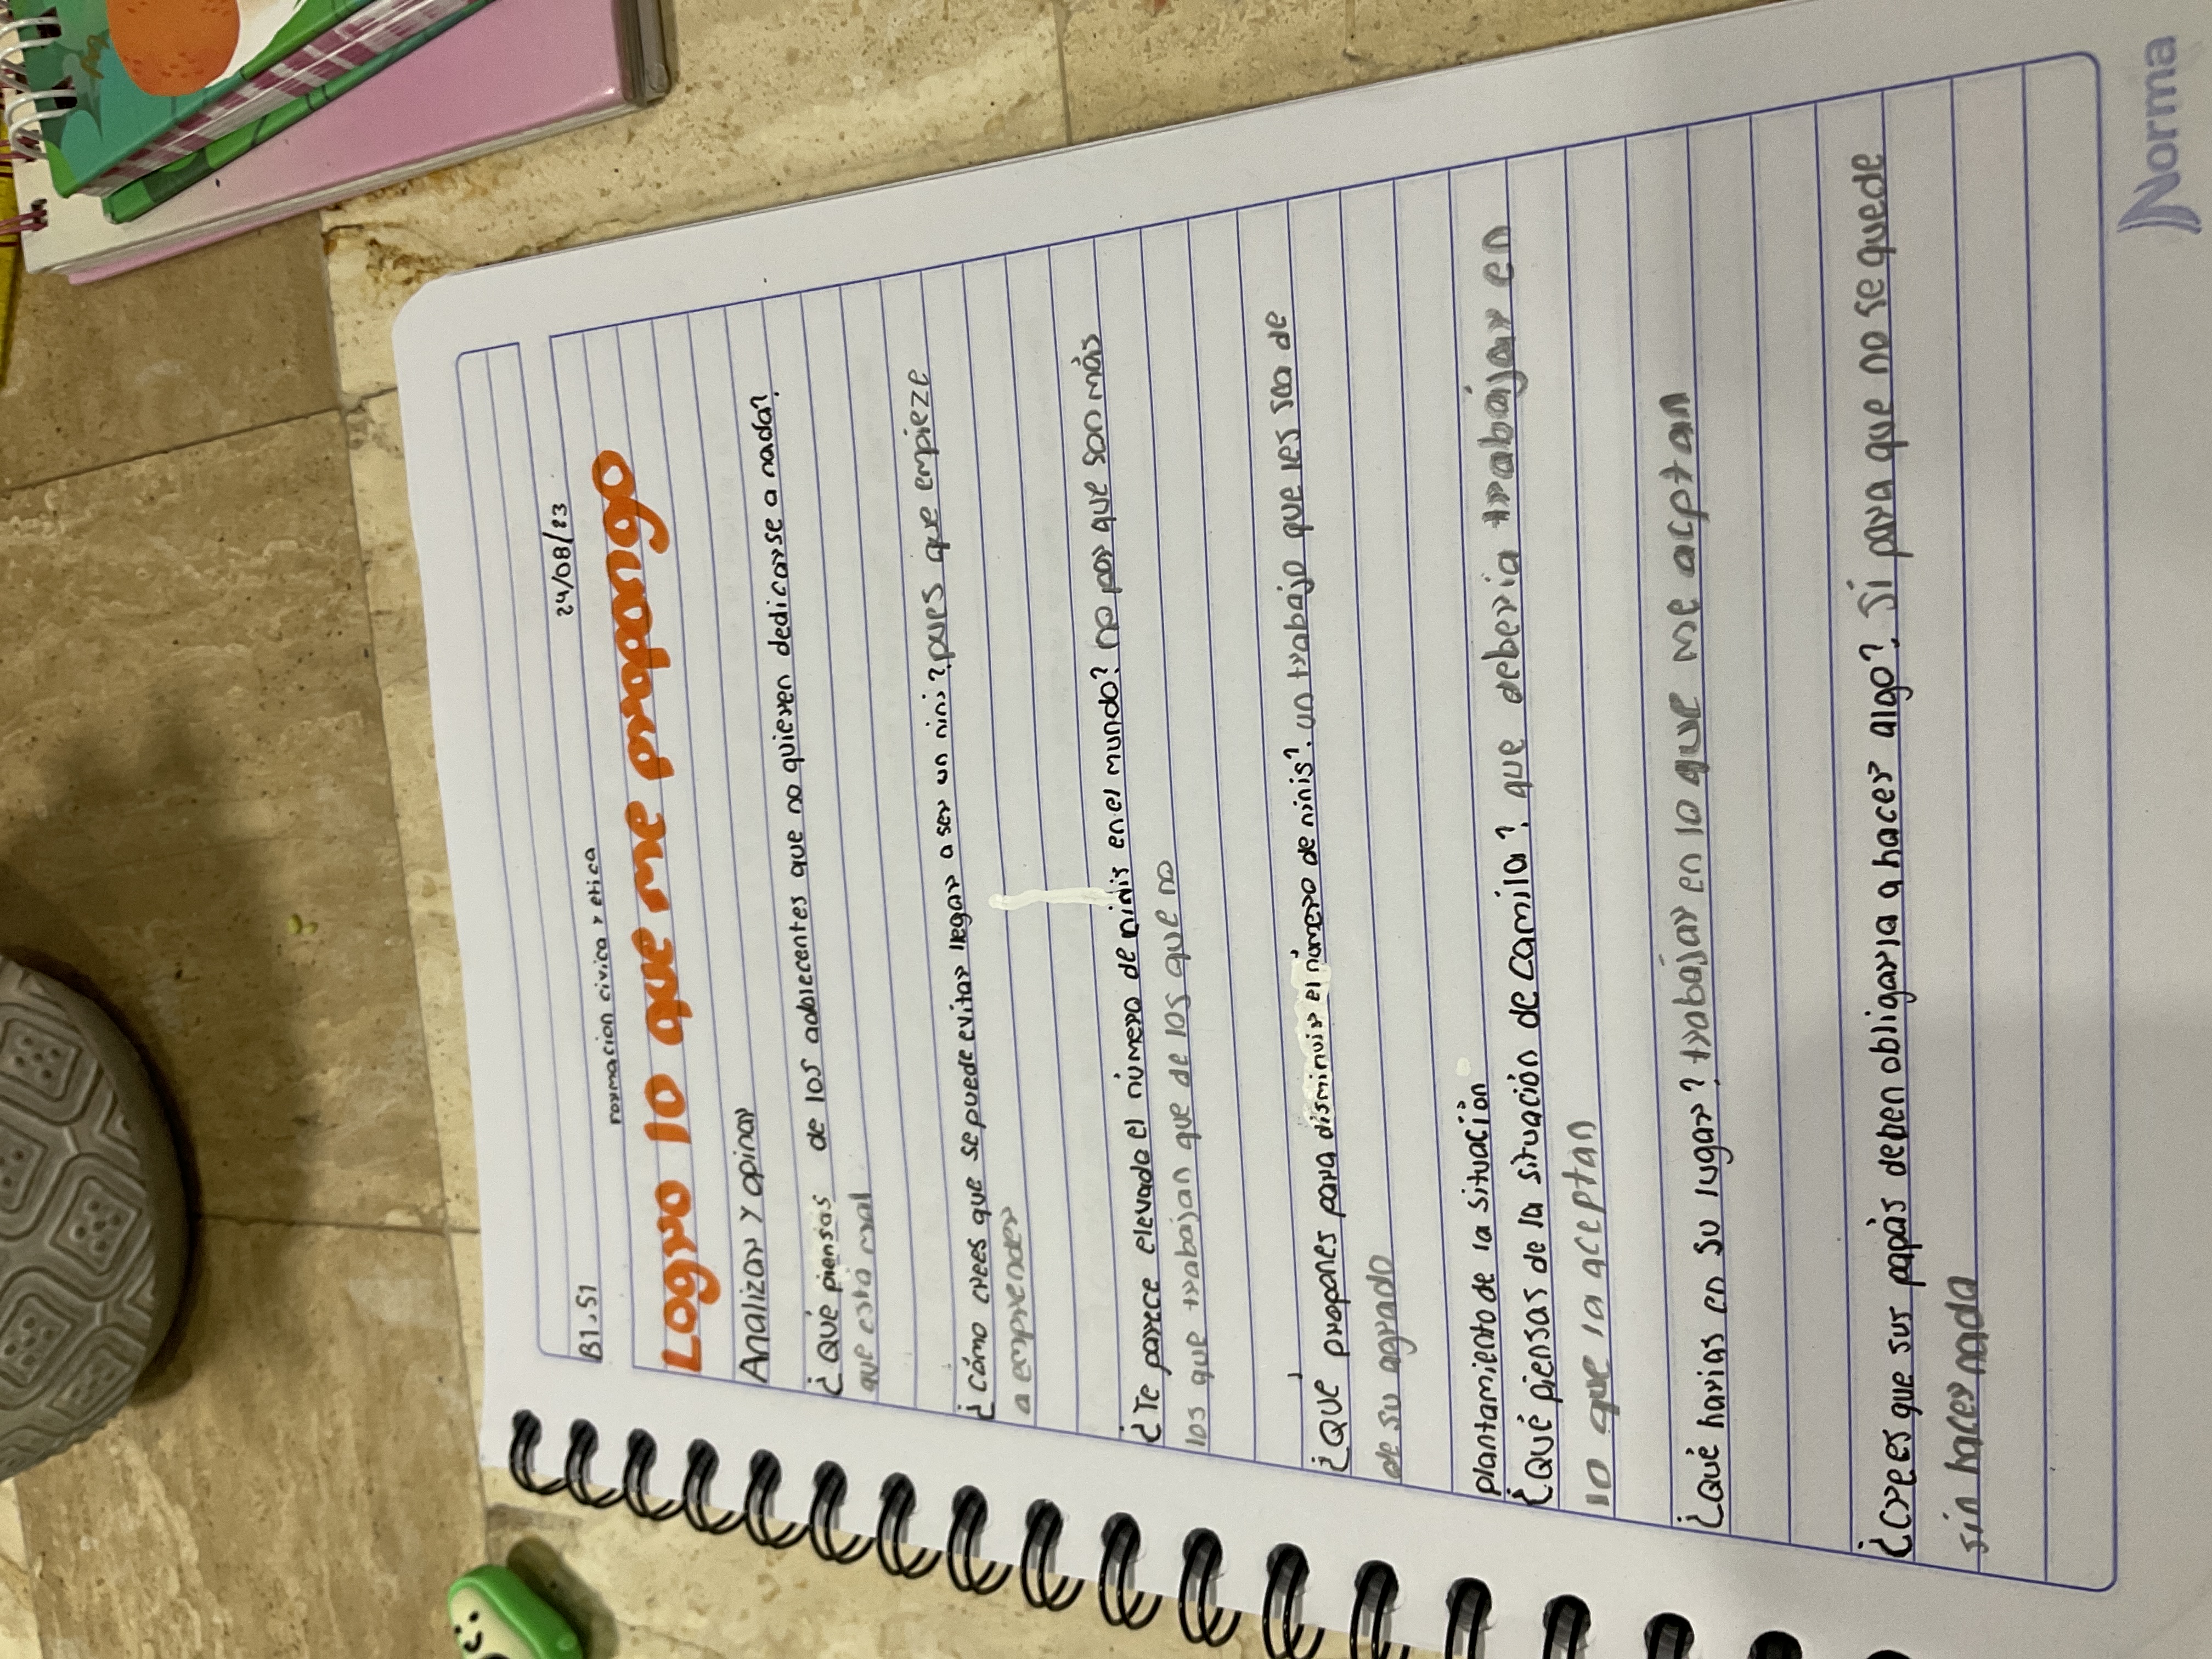 24/08/23
B1.S1
Formacion civica y etica
Logro lo que me propongo
Analizar y opinar
¿Qué piensas de los adolecentes que no quieren dedicarse a nada?
que esta mal
¿cómo crees que se puede evitar llegar a ser un nini? pues que empieze
a emprender
¿Te parece elevado el número de ninis en el mundo? no por que son más
los que trabajan que de los que no
¿Qué propones para disminuir el número de ninis? un trabajo que les sea de
de su agrado
plantamiento de la situación
¿Qué piensas de la situación de Camila? que deberia trabajar en
lo que la aceptan
¿Qué harias en su lugar? trabajar en lo que me acptan
¿Crees que sus papás deben obligarla a hacer algo? Si para que no se quede
sin hacer nada
Norma